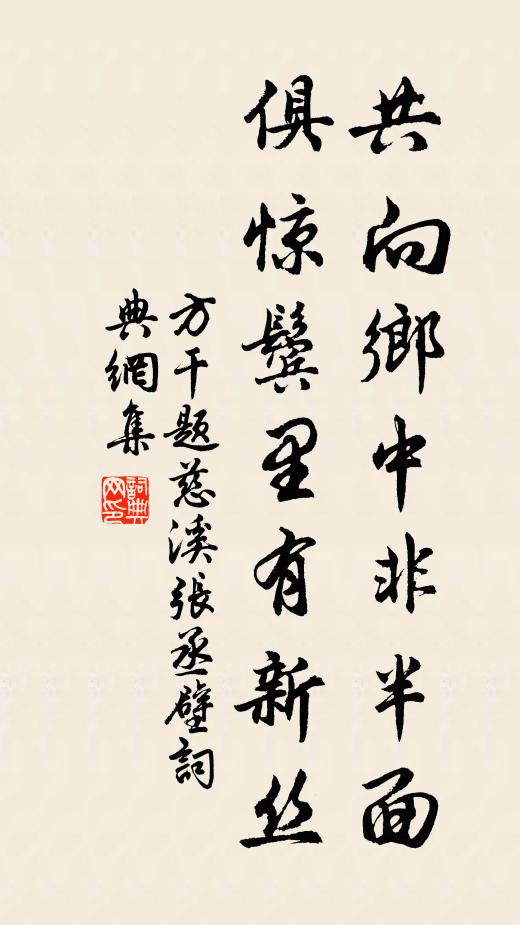 共向鄉中非半面
俱惊鬓里有新丝
方干题慈溪張丞壁詞
典網集
詞典网印